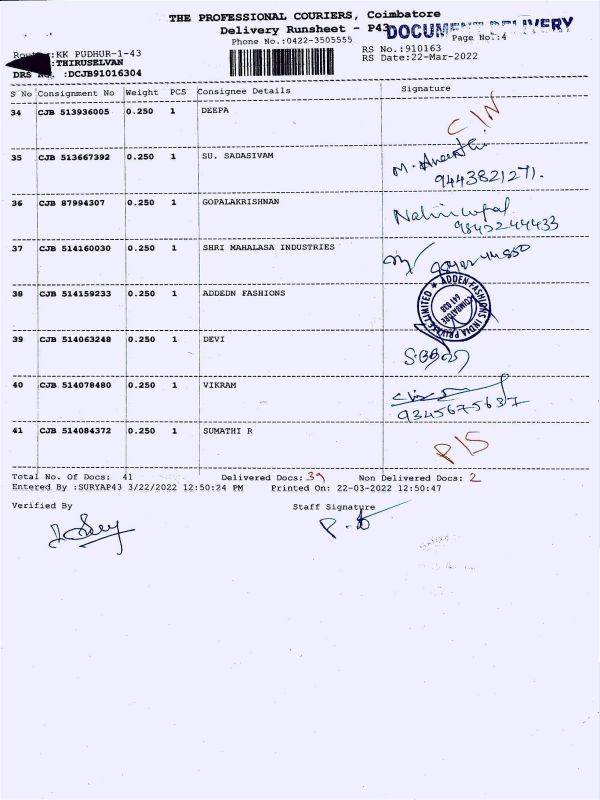 THE PROFESSIONAL COURIERS, Coimbatore
Delivery Runsheet - P43
DOCUMENT DELIVERY
Phone No.:0422-3505555
Page No.:4
:KK PUDHUR-1-43
RS No.:910163
:THIRUSELVAN
RS Date:22-Mar-2022
DRS No. :DCJB91016304
S No Consignment No Weight PCS Consignee Details Signature
34 CJB 513936005 0.250 1 DEEPA
35 CJB 513667392 0.250 1 SU. SADASIVAM
9443821271.
36 CJB 87994307 0.250 1 GOPALAKRISHNAN
37 CJB 514160030 0.250 1 SHRI MAHALASA INDUSTRIES
38 CJB 514159233 0.250 1 ADDEDN FASHIONS
ADDEN FASHIONS INDIA PRIVATE LIMITED
COIMBATORE
641 038
39 CJB 514063248 0.250 1 DEVI
40 CJB 514078480 0.250 1 VIKRAM
9345675637
41 CJB 514084372 0.250 1 SUMATHI R
Total No. Of Docs: 41 Delivered Docs: 39 Non Delivered Docs: 2
Entered By :SURYAP43 3/22/2022 12:50:24 PM Printed On: 22-03-2022 12:50:47
Verified By Staff Signature